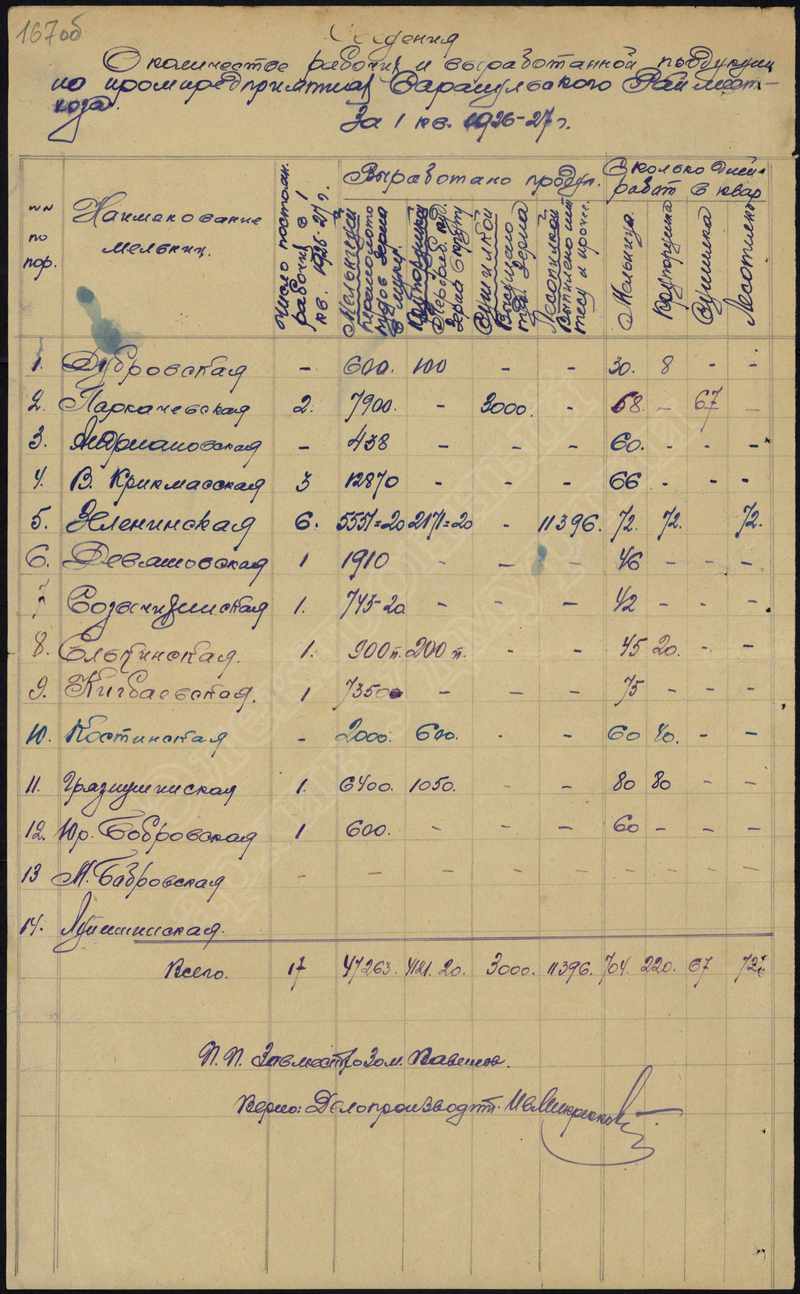 167об
Сведения
О количестве рабочих и выработанной продукции
по промпредприятиях Сарапульского Раймест-
хоза.
За 1 кв. 1926-27 г.
№№ по пор.
Наименование мельниц.
Число постоян. рабочих в 1 кв. 1926-27 г.
Выработано продук.
Сколько дней работ. в квар.
Мельницей перемолото пудов зерна в муку.
Крупорушкой зерна в крупу
Сушилкой Высушено пуд. зерна
Лесопилкой Выпилено шт. тесу и проч.
Мельница.
Крупорушка
Сушилка
Лесопилка
1. Дубровская - 600. 100 - - 30. 8 - -
2. Паркачевская 2. 7900. - 3000. - 68. - 67 -
3. Андриановская - 438 - - - 60. - - -
4. В. Крикмасская 3 12870 - - - 66 - - -
5. Зеленинская 6. 5551=20 2171=20 - 11396. 72. 72. 72.
6. Девятовская 1 1910 - - - 46 - - -
7 1. 743-20 - - - 42 - - -
8. Елькинская. 1. 900 п. 200 п. - - 45 20. - -
9. Кигбаевская. 1 7350 - - - 75 - - -
10. Костинская - 2000. 600. - - 60 40. - -
11. Грязнушинская 1. 6400. 1050. - - 80 80 - -
12. Юр. Бобровская 1 600. - - - 60 - - -
13 М. Бобровская - - - - - - - - -
14.
Всего. 17 47263. 4121. 20. 3000. 11396. 704. 220. 67 72
П. П. Завместхозом.
Верно: Делопроизводит.